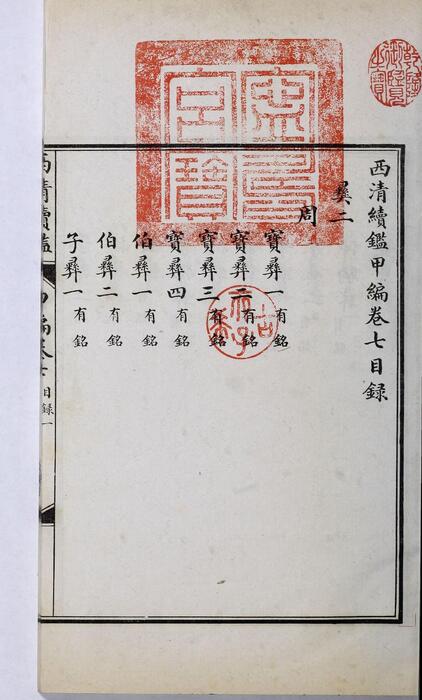 乾隆御覽之寶
寧壽宮寶
西清續鑑甲編卷七目録
彝二
周
寶彝一 有銘
寶彝二 有銘
寶彝三 有銘
寶彝四 有銘
伯彝一 有銘
伯彝二 有銘
子彝一 有銘
古希天子
西清續鑑 甲編卷七 目録一